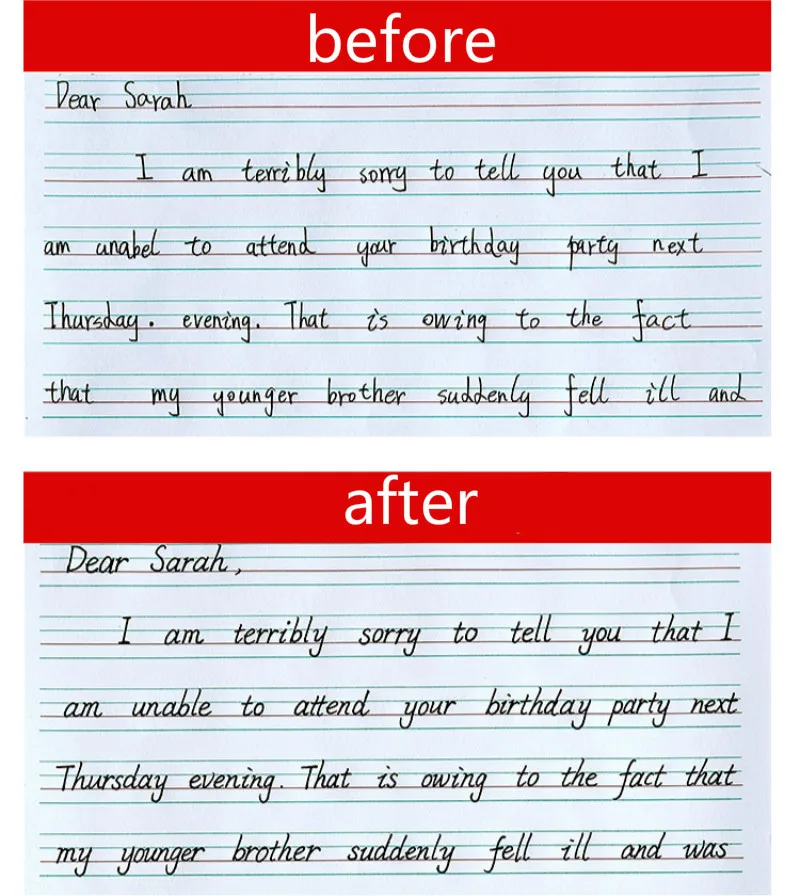 before
Dear Sarah
I am terribly sorry to tell you that I
am unabel to attend your birthday party next
Thursday. evening. That is owing to the fact
that my younger brother suddenly fell ill and
after
Dear Sarah,
I am terribly sorry to tell you that I
am unable to attend your birthday party next
Thursday evening. That is owing to the fact that
my younger brother suddenly fell ill and was